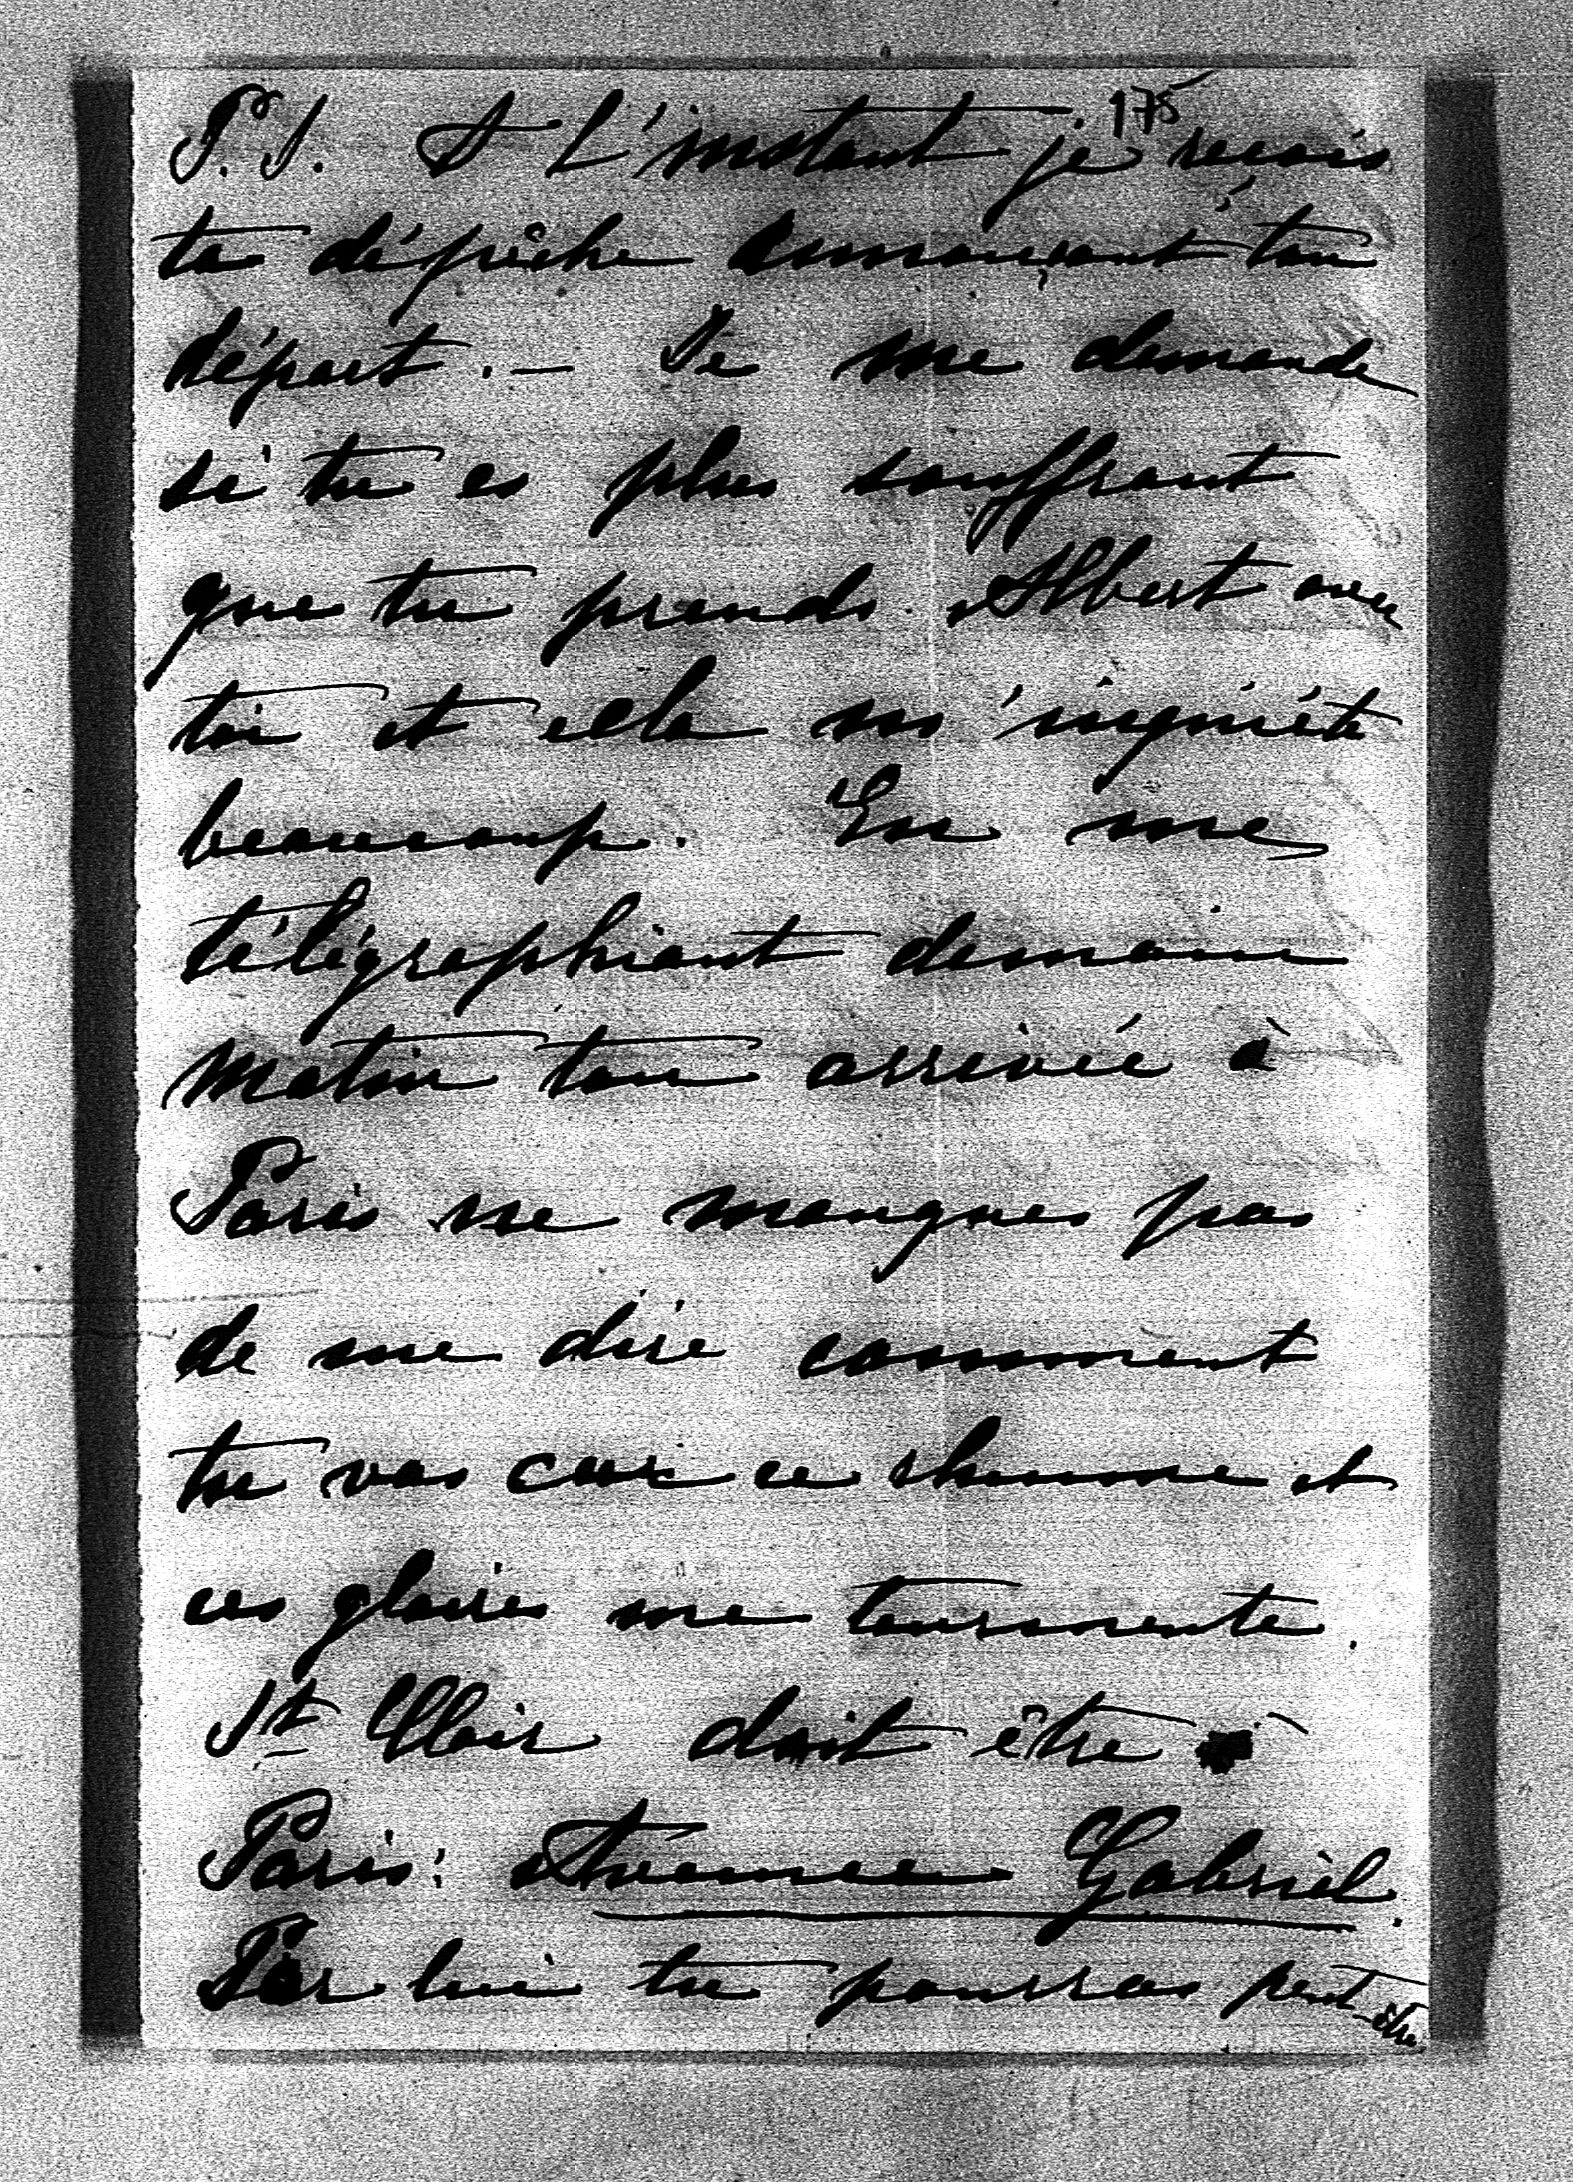 175
P.S. A L'instant je reçois
ta dépêche annonçant ton
départ. — Je me demande
si tu es plus souffrant
que tu prends Albert avec
toi et cela m'inquiète
beaucoup. En me
télégraphiant demain
matin ton arrivée à
Paris ne manques pas
de me dire comment
tu vas car ce rhume et
ces glaires me tourmente.
St Clair doit être à
Paris: Avenue Gabriel.
Par lui tu pourras peut-être